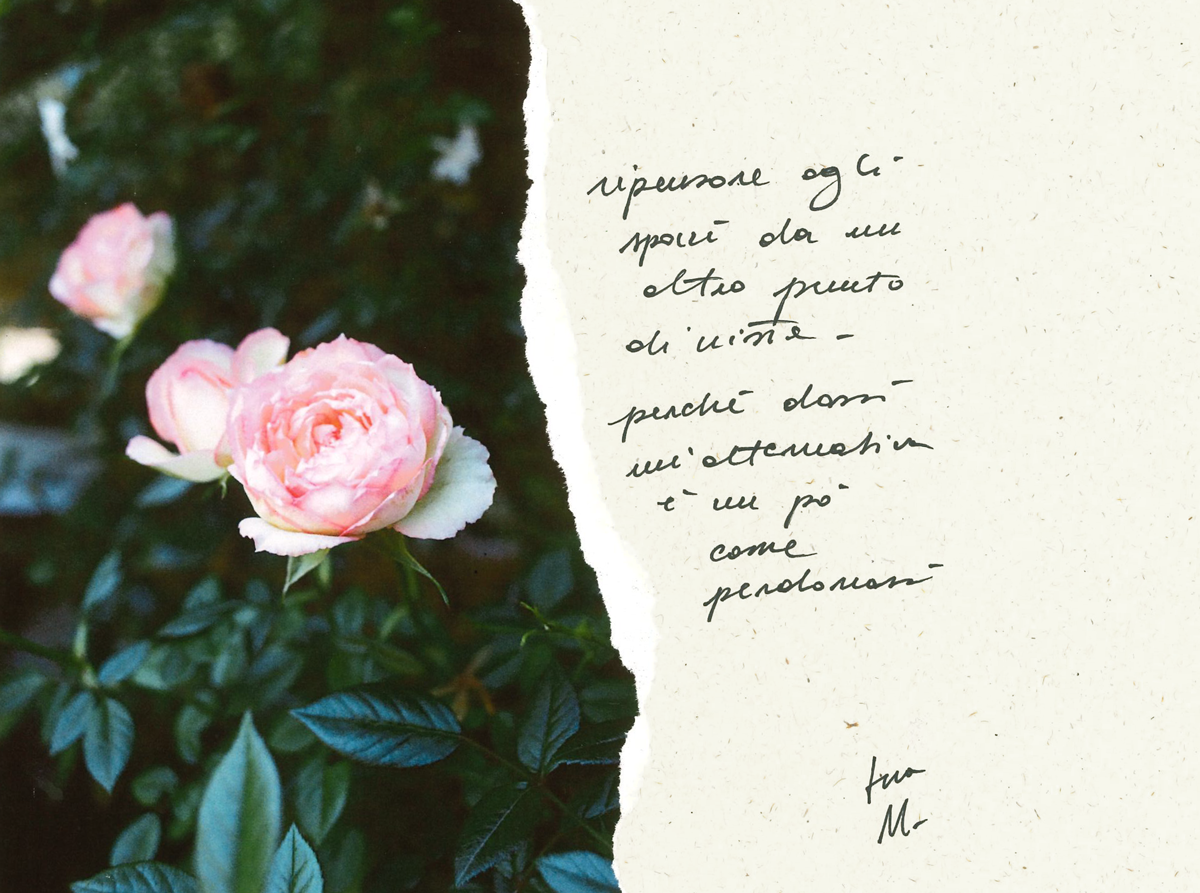 ripensare agli
spazi da un
altro punto
di vista -
perché darsi
un'alternativa
è un pò
come
perdonarsi
tua
M.